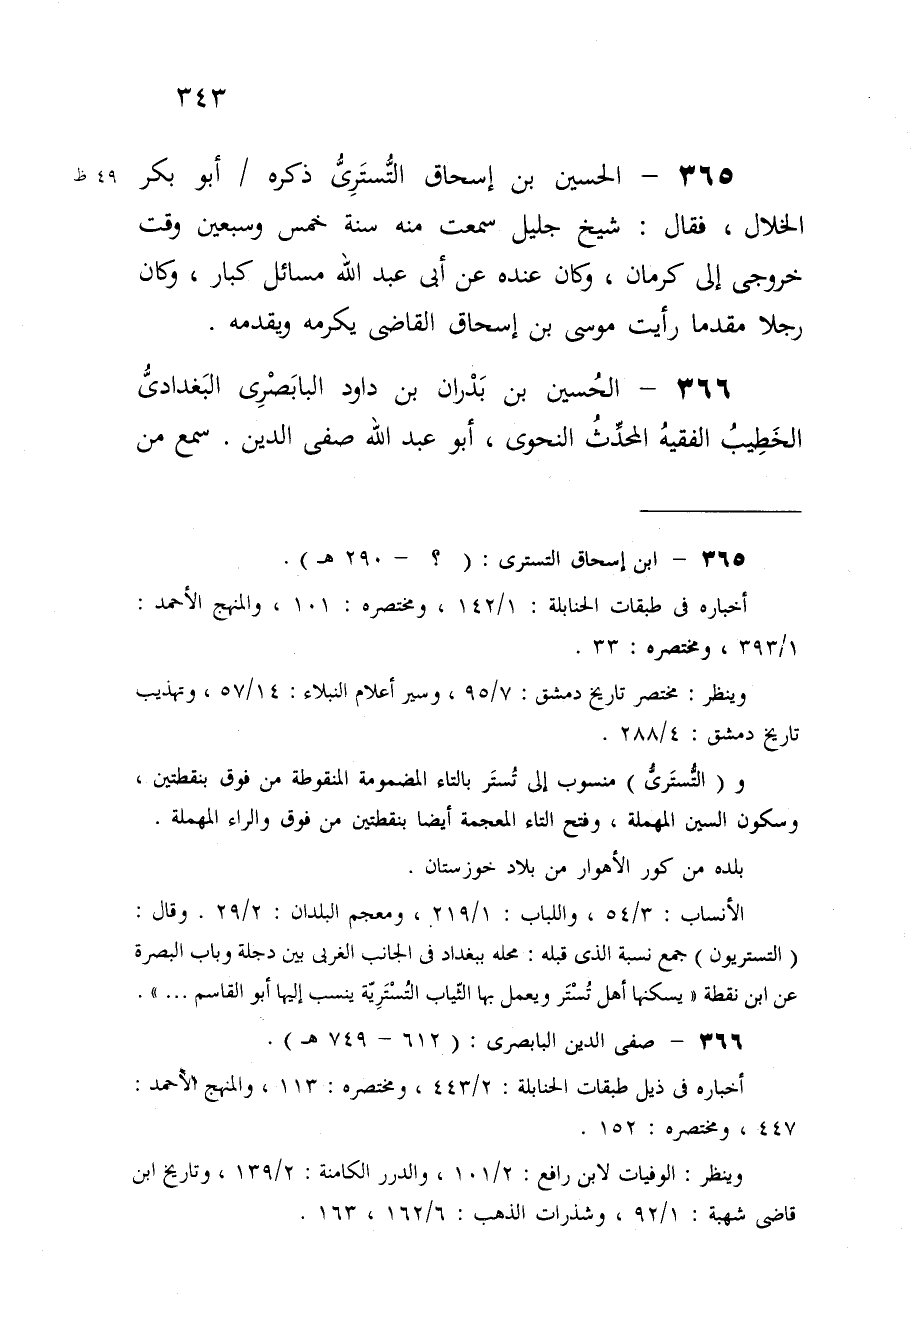 ٣٤٣
٣٦٥ – الحسين بن إسحاق التُّستَرِىُّ ذكره / أبو بكر ٤٩ ظ
الخلال ، فقال : شيخ جليل سمعت منه سنة خمس وسبعين وقت
خروجى إلى كرمان ، وكان عنده عن أبى عبد الله مسائل كبار ، وكان
رجلا مقدما رأيت موسى بن إسحاق القاضى يكرمه ويقدمه .
٣٦٦ – الحُسين بن بَدْران بن داود البابَصْرِى البَغدادىُّ
الخَطِيبُ الفقيهُ المحدِّثُ النحوى ، أبو عبد الله صفى الدين . سمع من
٣٦٥ – ابن إسحاق التسترى : ( ؟ – ٢٩٠ هـ ) .
أخباره فى طبقات الحنابلة : ١٤٢/١ ، ومختصره : ١٠١ ، والمنهج الأحمد :
٣٩٣/١ ، ومختصره : ٣٣ .
وينظر : مختصر تاريخ دمشق : ٩٥/٧ ، وسير أعلام النبلاء : ٥٧/١٤ ، وتهذيب
تاريخ دمشق : ٢٨٨/٤ .
و ( التُّستَرىُّ ) منسوب إلى تُستَر بالتاء المضمومة المنقوطة من فوق بنقطتين ،
وسكون السين المهملة ، وفتح التاء المعجمة أيضا بنقطتين من فوق والراء المهملة .
بلده من كور الأهوار من بلاد خوزستان .
الأنساب : ٥٤/٣ ، واللباب : ٢١٩/١ ، ومعجم البلدان : ٢٩/٢ . وقال :
( التستريون ) جمع نسبة الذى قبله : محله ببغداد فى الجانب الغربى بين دجلة وباب البصرة
عن ابن نقطة « يسكنها أهل تُسْتَر ويعمل بها الثّياب التُسْتَرِيّة ينسب إليها أبو القاسم ... » .
٣٦٦ – صفى الدين البابصرى : ( ٦١٢ – ٧٤٩ هـ ) .
أخباره فى ذيل طبقات الحنابلة : ٤٤٣/٢ ، ومختصره : ١١٣ ، والمنهج الأحمد :
٤٤٧ ، ومختصره : ١٥٢ .
وينظر : الوفيات لابن رافع : ١٠١/٢ ، والدرر الكامنة : ١٣٩/٢ ، وتاريخ ابن
قاضى شهبة : ٩٢/١ ، وشذرات الذهب : ١٦٢/٦ ، ١٦٣ .